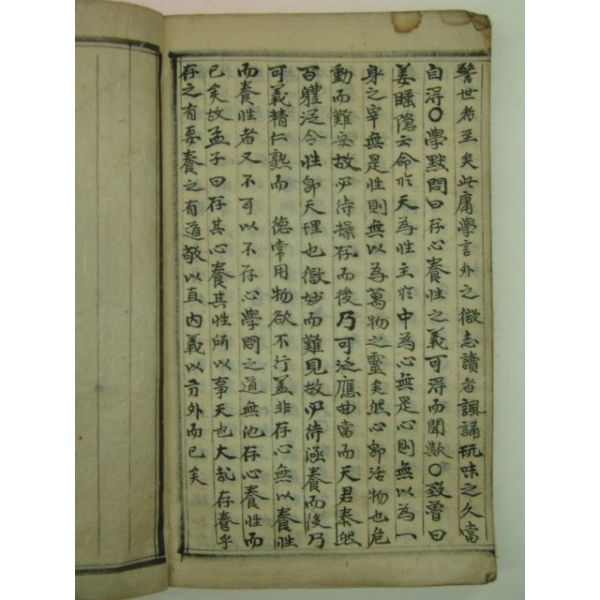 警世者至矣此庸學言外之微志讀者諷誦玩味之久當
自得○學默問曰存心養性之義可得而聞歟○致曾曰
姜睡隱云命於天為性主於中為心無是心則無以為一
身之宰無是性則無以為萬物之靈矣然心卽活物也危
動而難安故必待操存而後乃可泛應曲當而天君泰然
百體從令性卽天理也微妙而難見故必待涵養而後乃
可義精仁熟而 德常用物欲不行盖非存心無以養性
而養性者又不可以不存心學問之道無他存心養性而
已矣故孟子曰存其心養其性所以事天也大哉存養乎
存之有要養之有道敬以直內義以方外而已矣